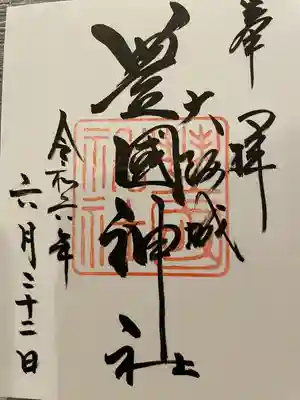 奉拝
大阪城
豊國神社
令和六年
六月二十二日